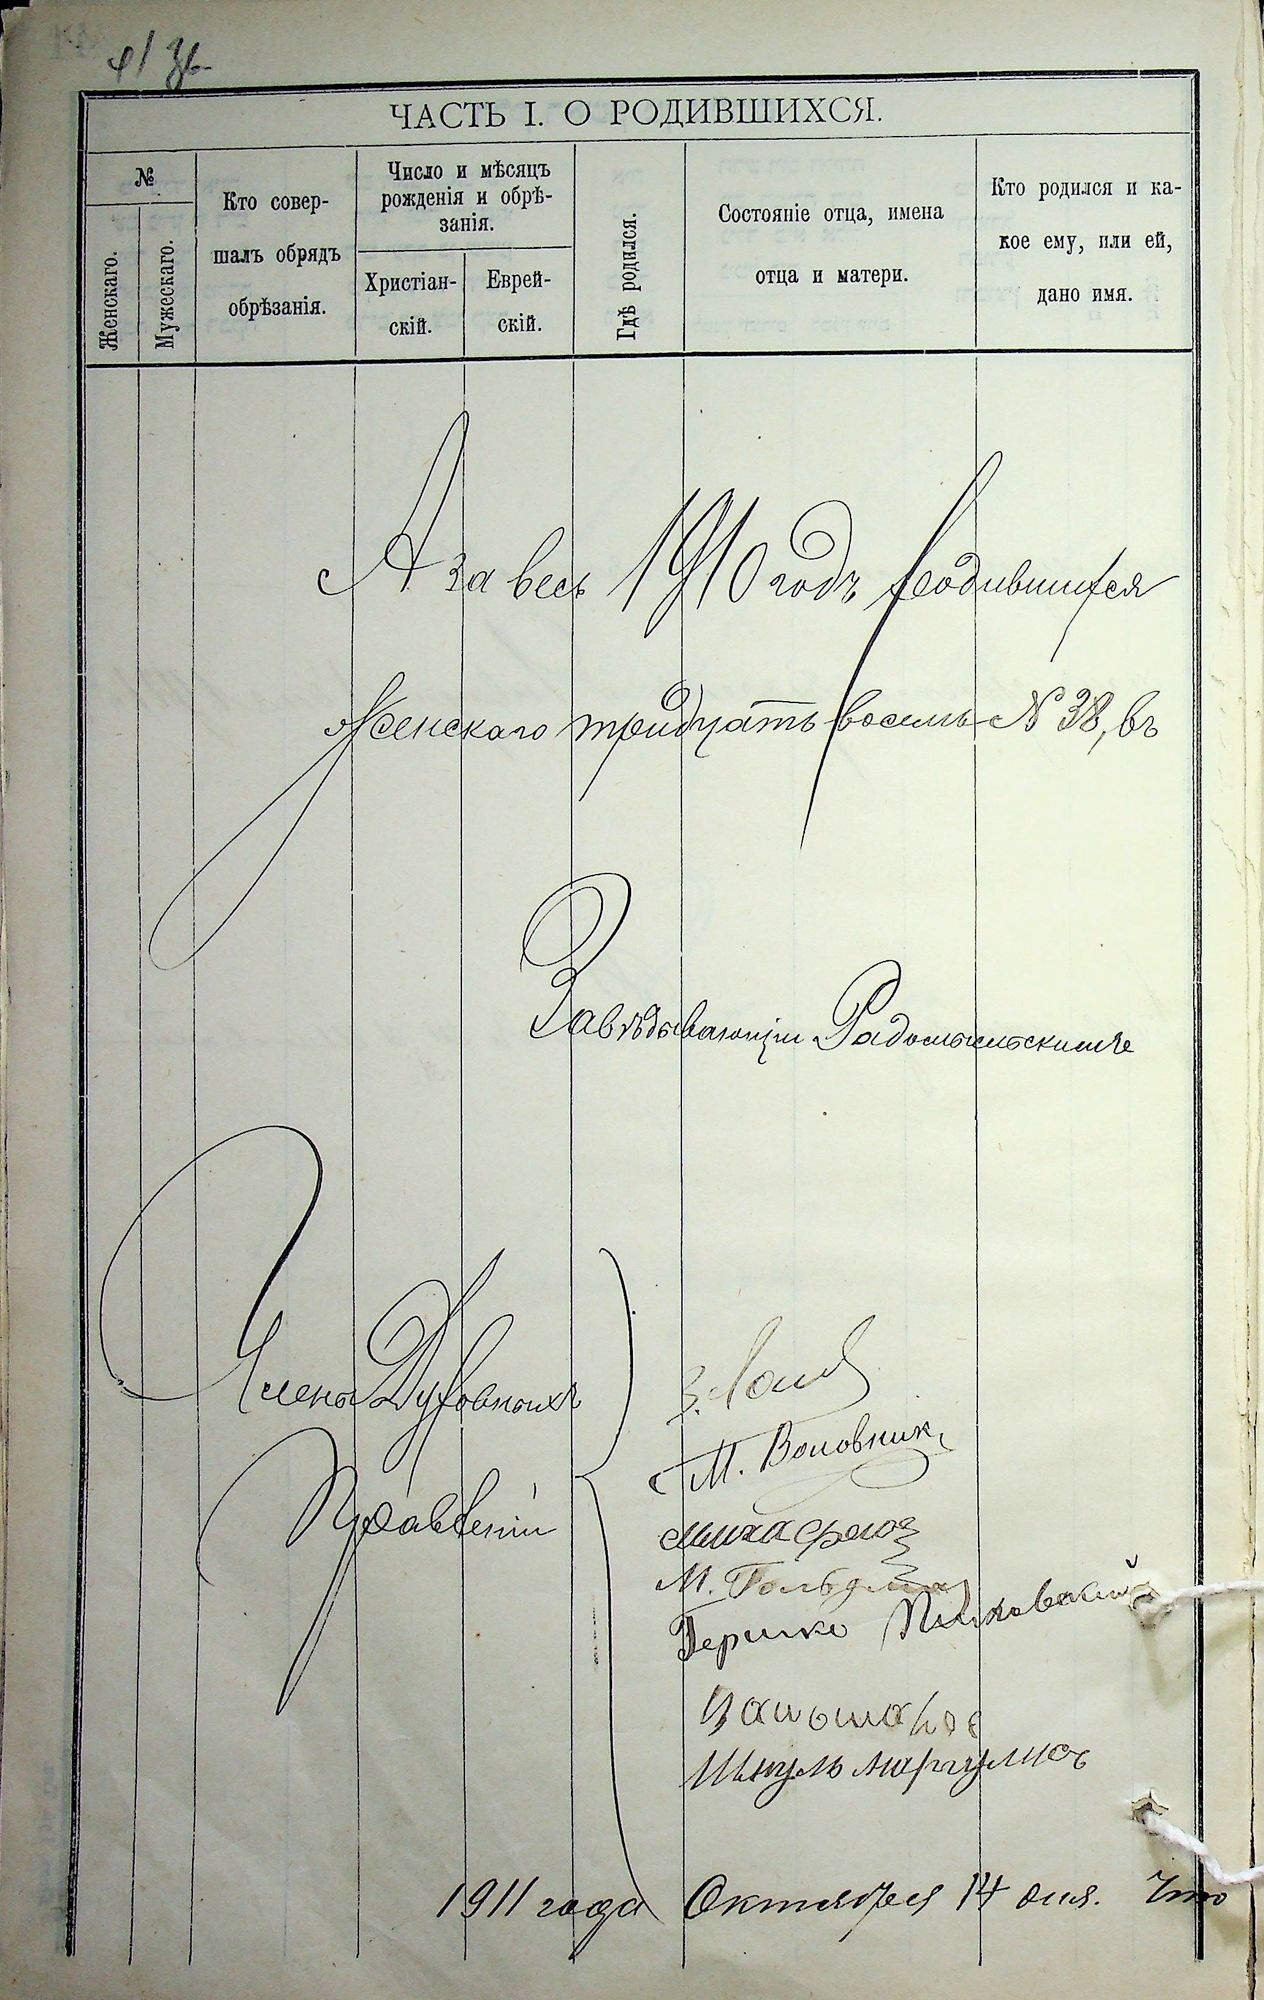 ЧАСТЬ I. О РОДИВШИХСЯ.
№
Женскаго.
Мужескаго.
Кто совер-
шалъ обрядъ
обрѣзанія.
Число и мѣсяцъ
рожденія и обрѣ-
занія.
Христіан-
скій.
Еврей-
скій.
Гдѣ родился.
Состояніе отца, имена
отца и матери.
Кто родился и ка-
кое ему, или ей,
дано имя.
А за весь 1910 годъ родившихся
женскаго тридцать восемь № 38, въ
Завѣдывающій Радомысльскимъ
Члены Духовныхъ
Правленій
М. Воловник
М. Гольдман
Гершко
Шмуль Маргулисъ
1911 года Октября 14 дня. Что